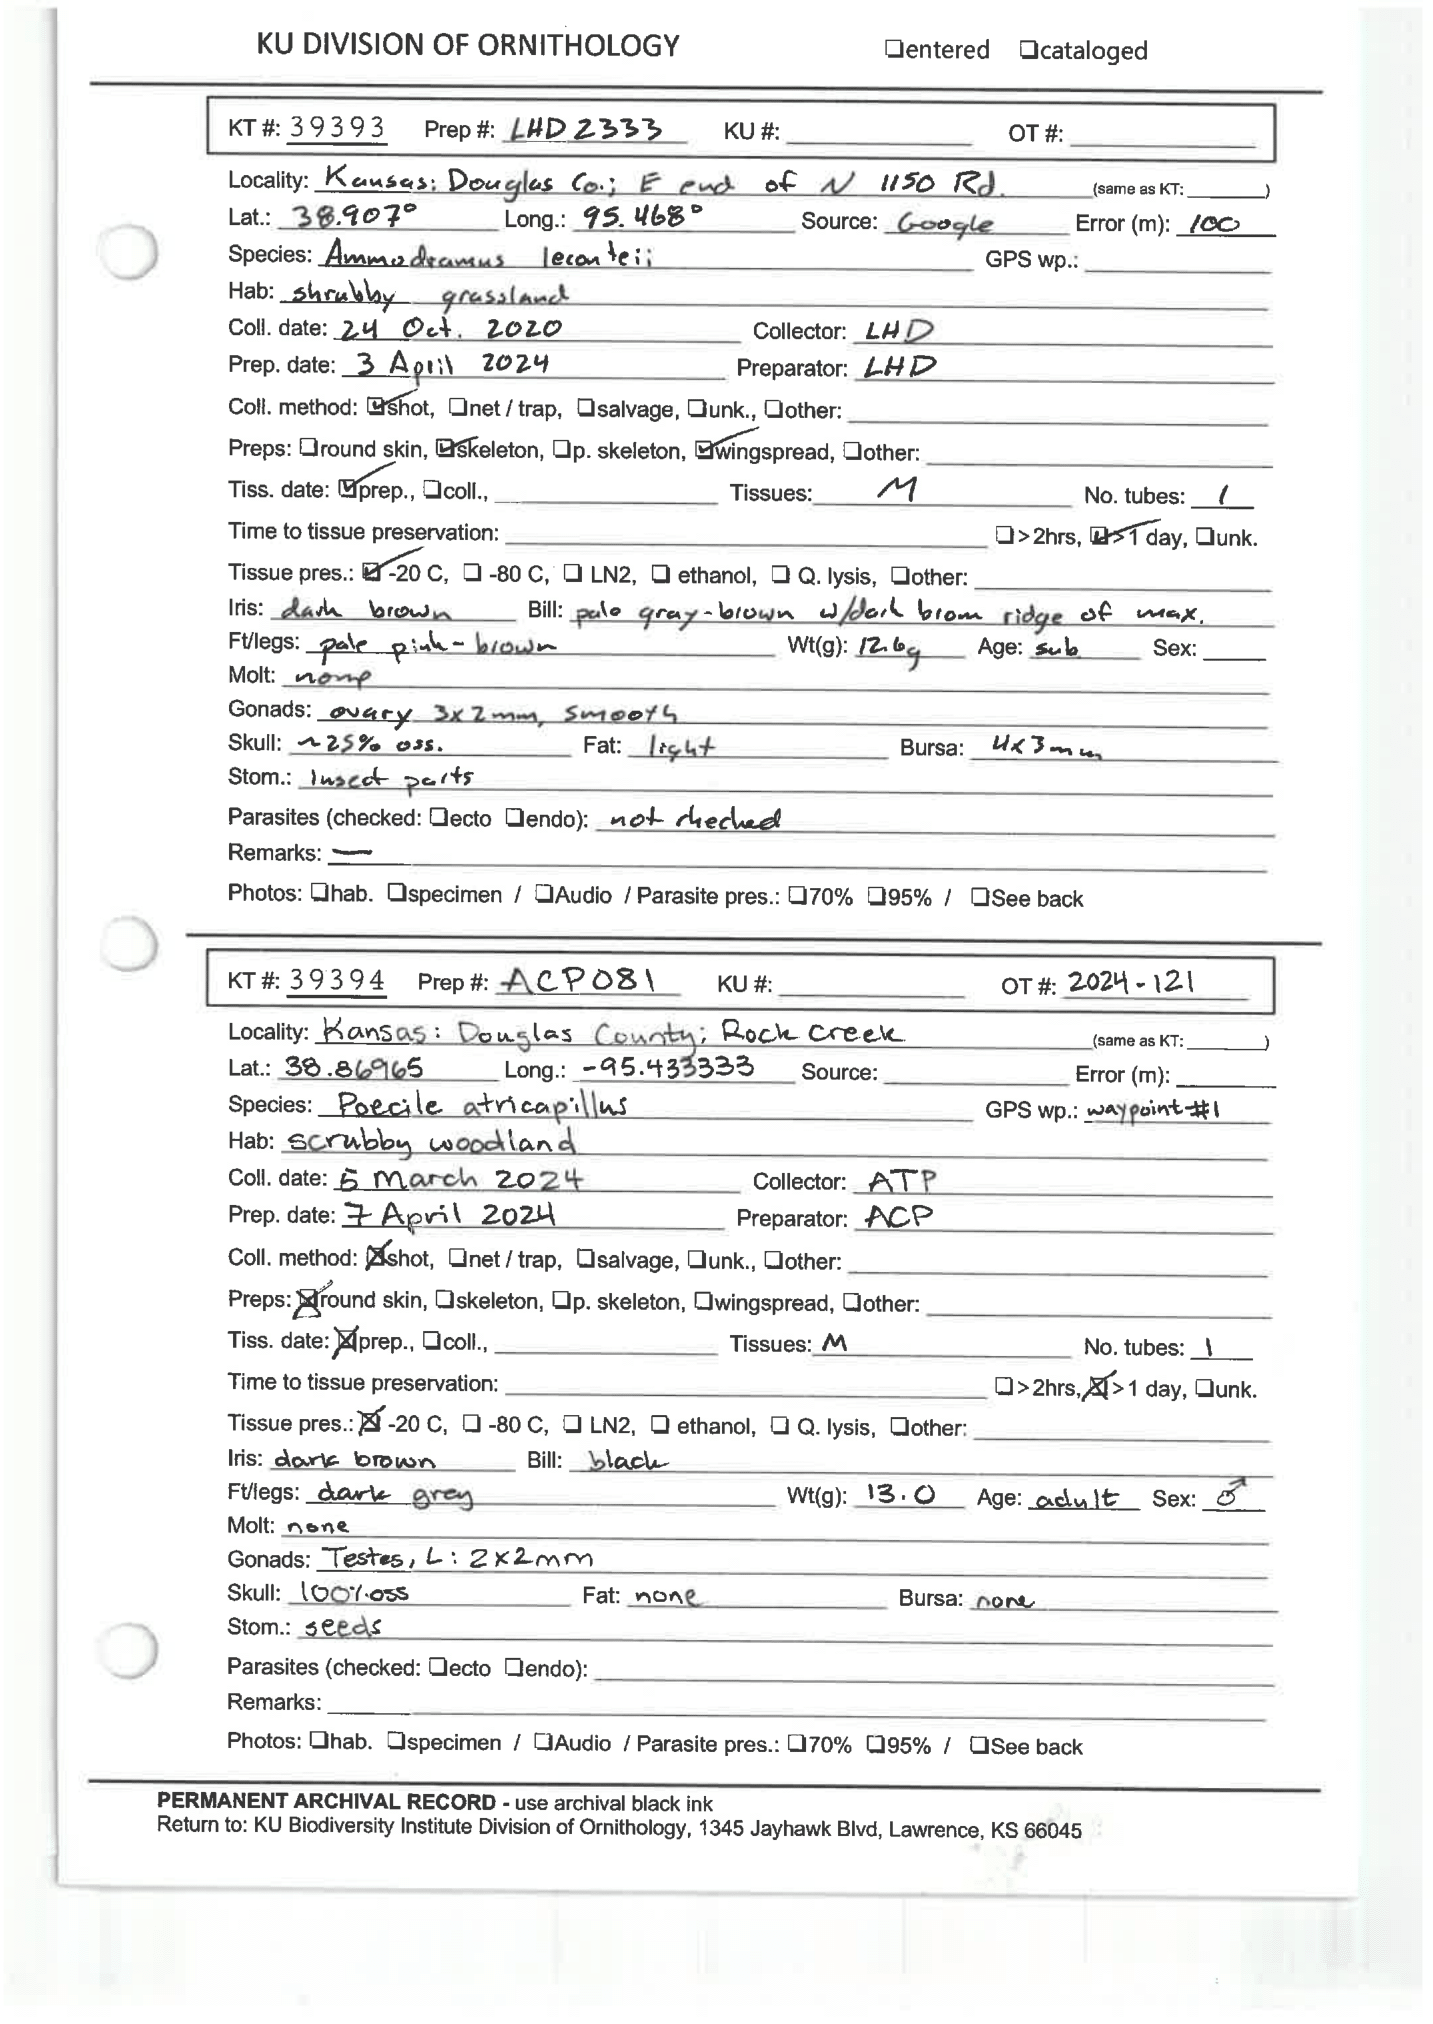 KU DIVISION OF ORNITHOLOGY ❏entered ❏cataloged
KT #: 39393 Prep #: LHD 2333 KU #: OT #:
Locality: Kansas: Douglas Co.; E end of N 1150 Rd. (same as KT: )
Lat.: 38.907° Long.: 95.468° Source: Google Error (m): 100
Species: Ammodramus leconteii GPS wp.:
Hab: shrubby grassland
Coll. date: 24 Oct. 2020 Collector: LHD
Prep. date: 3 April 2024 Preparator: LHD
Coll. method: ☑shot, ❏net / trap, ❏salvage, ❏unk., ❏other:
Preps: ❏round skin, ☑skeleton, ❏p. skeleton, ☑wingspread, ❏other:
Tiss. date: ☑prep., ❏coll., Tissues: M No. tubes: 1
Time to tissue preservation: ❏>2hrs, ☑>1 day, ❏unk.
Tissue pres.: ☑ -20 C, ❏ -80 C, ❏ LN2, ❏ ethanol, ❏ Q. lysis, ❏other:
Iris: dark brown Bill: pale gray-brown w/dark brown ridge of max.
Ft/legs: pale pink-brown Wt(g): 12.6g Age: sub Sex:
Molt: none
Gonads: ovary 3x2mm, smooth
Skull: ~25% oss. Fat: light Bursa: 4x3mm
Stom.: Insect parts
Parasites (checked: ❏ecto ❏endo): not checked
Remarks: —
Photos: ❏hab. ❏specimen / ❏Audio / Parasite pres.: ❏70% ❏95% / ❏See back
KT #: 39394 Prep #: ACP081 KU #: OT #: 2024-121
Locality: Kansas: Douglas County; Rock Creek (same as KT: )
Lat.: 38.86965 Long.: -95.433333 Source: Error (m):
Species: Poecile atricapillus GPS wp.: waypoint #1
Hab: scrubby woodland
Coll. date: 5 March 2024 Collector: ATP
Prep. date: 7 April 2024 Preparator: ACP
Coll. method: ☒shot, ❏net / trap, ❏salvage, ❏unk., ❏other:
Preps: ☒round skin, ❏skeleton, ❏p. skeleton, ❏wingspread, ❏other:
Tiss. date: ☒prep., ❏coll., Tissues: M No. tubes: 1
Time to tissue preservation: ❏>2hrs, ☒>1 day, ❏unk.
Tissue pres.: ☒ -20 C, ❏ -80 C, ❏ LN2, ❏ ethanol, ❏ Q. lysis, ❏other:
Iris: dark brown Bill: black
Ft/legs: dark grey Wt(g): 13.0 Age: adult Sex: ♂
Molt: none
Gonads: Testes, L: 2x2mm
Skull: 100% oss Fat: none Bursa: none
Stom.: seeds
Parasites (checked: ❏ecto ❏endo):
Remarks:
Photos: ❏hab. ❏specimen / ❏Audio / Parasite pres.: ❏70% ❏95% / ❏See back
PERMANENT ARCHIVAL RECORD - use archival black ink
Return to: KU Biodiversity Institute Division of Ornithology, 1345 Jayhawk Blvd, Lawrence, KS 66045